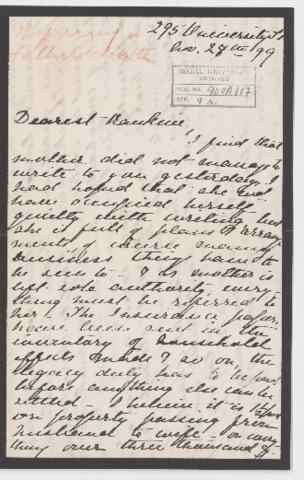 Referring to
father's death
295 University St
Nov. 27th /99
McGILL UNIVERSITY
ARCHIVES
ACC. NO.
REF.
Dearest Rankine
I find that
mother did not manage to
write to you yesterday. I
had hoped that she would
have occupied herself
quietly with writing but
she is full of plans & arrange
ments, of course many
business things have to
be seen to - & as mother is
left sole authority every
thing must be referred to
her. The Insurance papers
have been sent in, the
inventory of household
effects made & so on, the
legacy duty has to be paid
before anything else can be
settled - I believe it is
on property passing from
husband to wife - on any
thing over three thousand